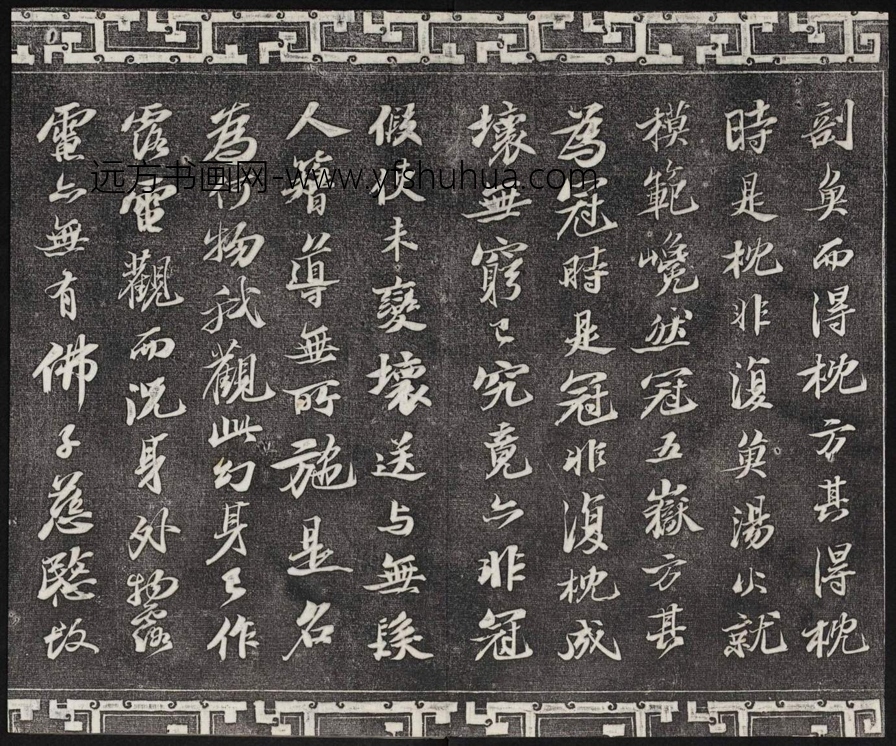 剖魚而得枕方其得枕
時是枕非復魚湯火就
模範巉然冠五嶽方其
為冠時是冠非復枕成
壞無窮已究竟亦非冠
假使未變壞送与無髮
人簪導無所施是名
為何物我觀此幻身已作
露電觀而況身外物露
電亦無有佛子慈愍故
远方书画网-www.yfshuhua.com